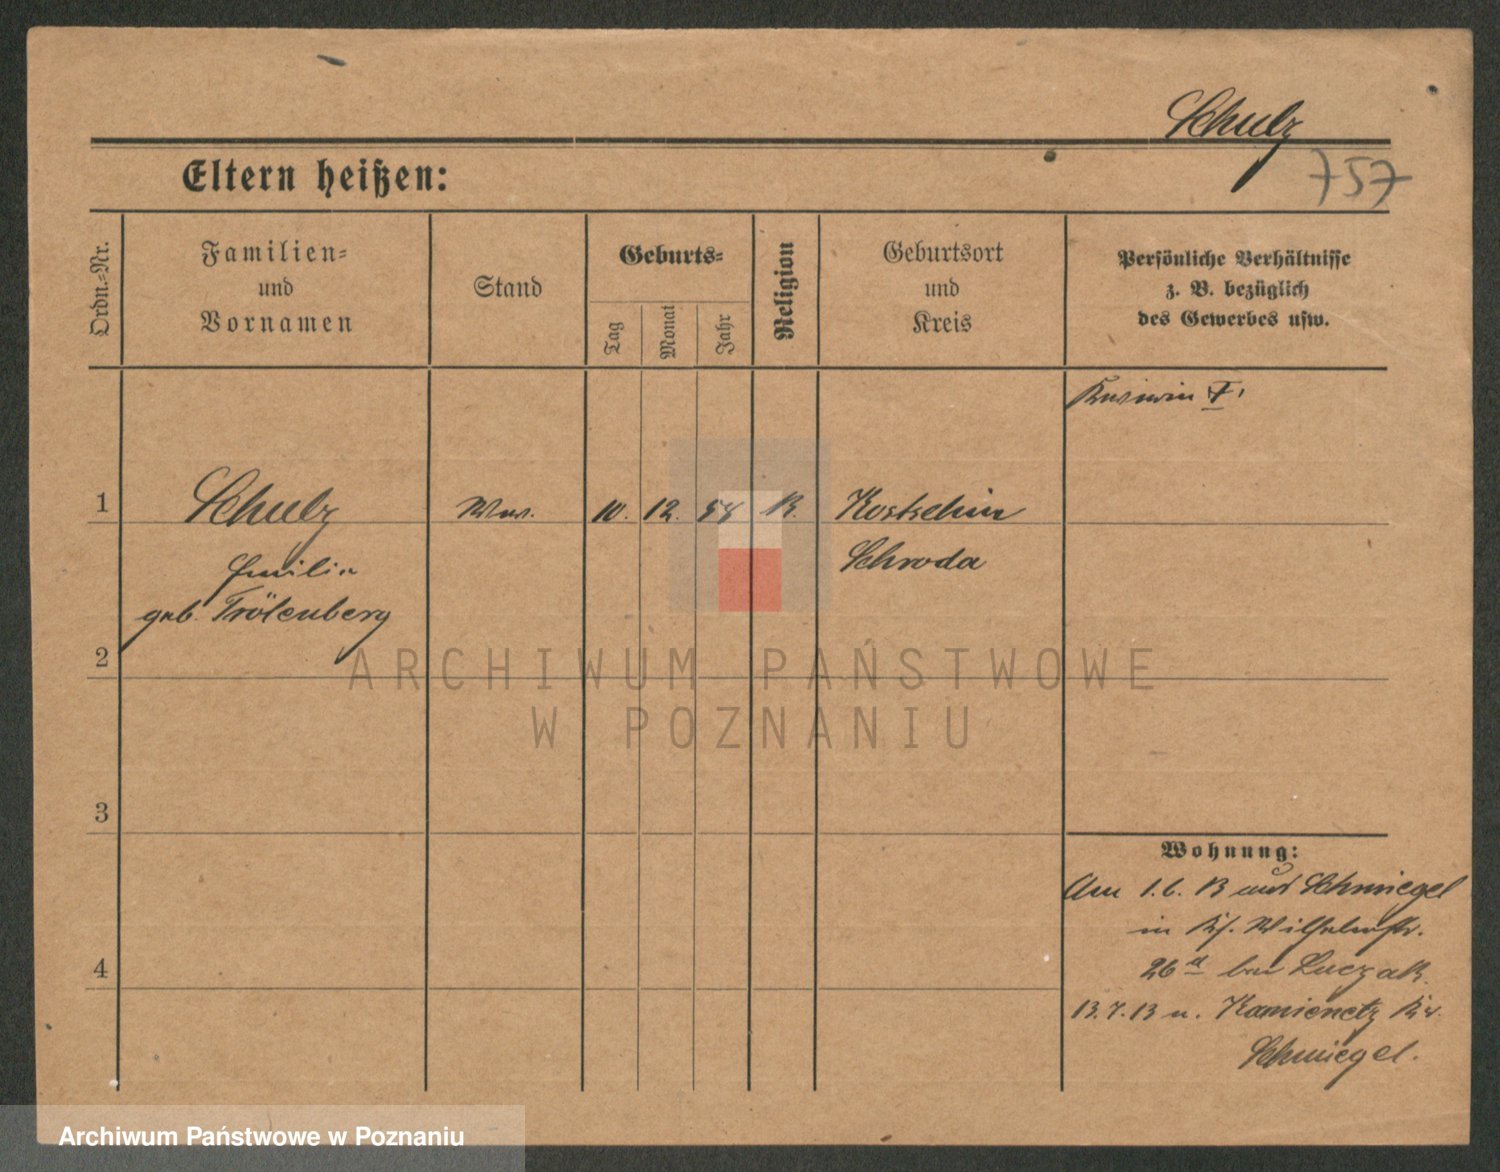 Schulz
757
Eltern heißen:
Ordn.-Nr.
Familien-
und
Vornamen
Stand
Geburts-
Tag
Monat
Jahr
Religion
Geburtsort
und
Kreis
Persönliche Verhältnisse
z. B. bezüglich
des Gewerbes usw.
1
Schulz
Ww.
10.
12.
54
K.
Kostschin
Emilie
Schroda
geb.
2
3
Wohnung:
Am 1.6. 13 aus Schmiegel
in Wilhelmstr.
4
26 a bei Luczak
13.7.13 n. Kamienetz Kr.
Schmiegel.
ARCHIWUM PAŃSTWOWE
W POZNANIU
Archiwum Państwowe w Poznaniu